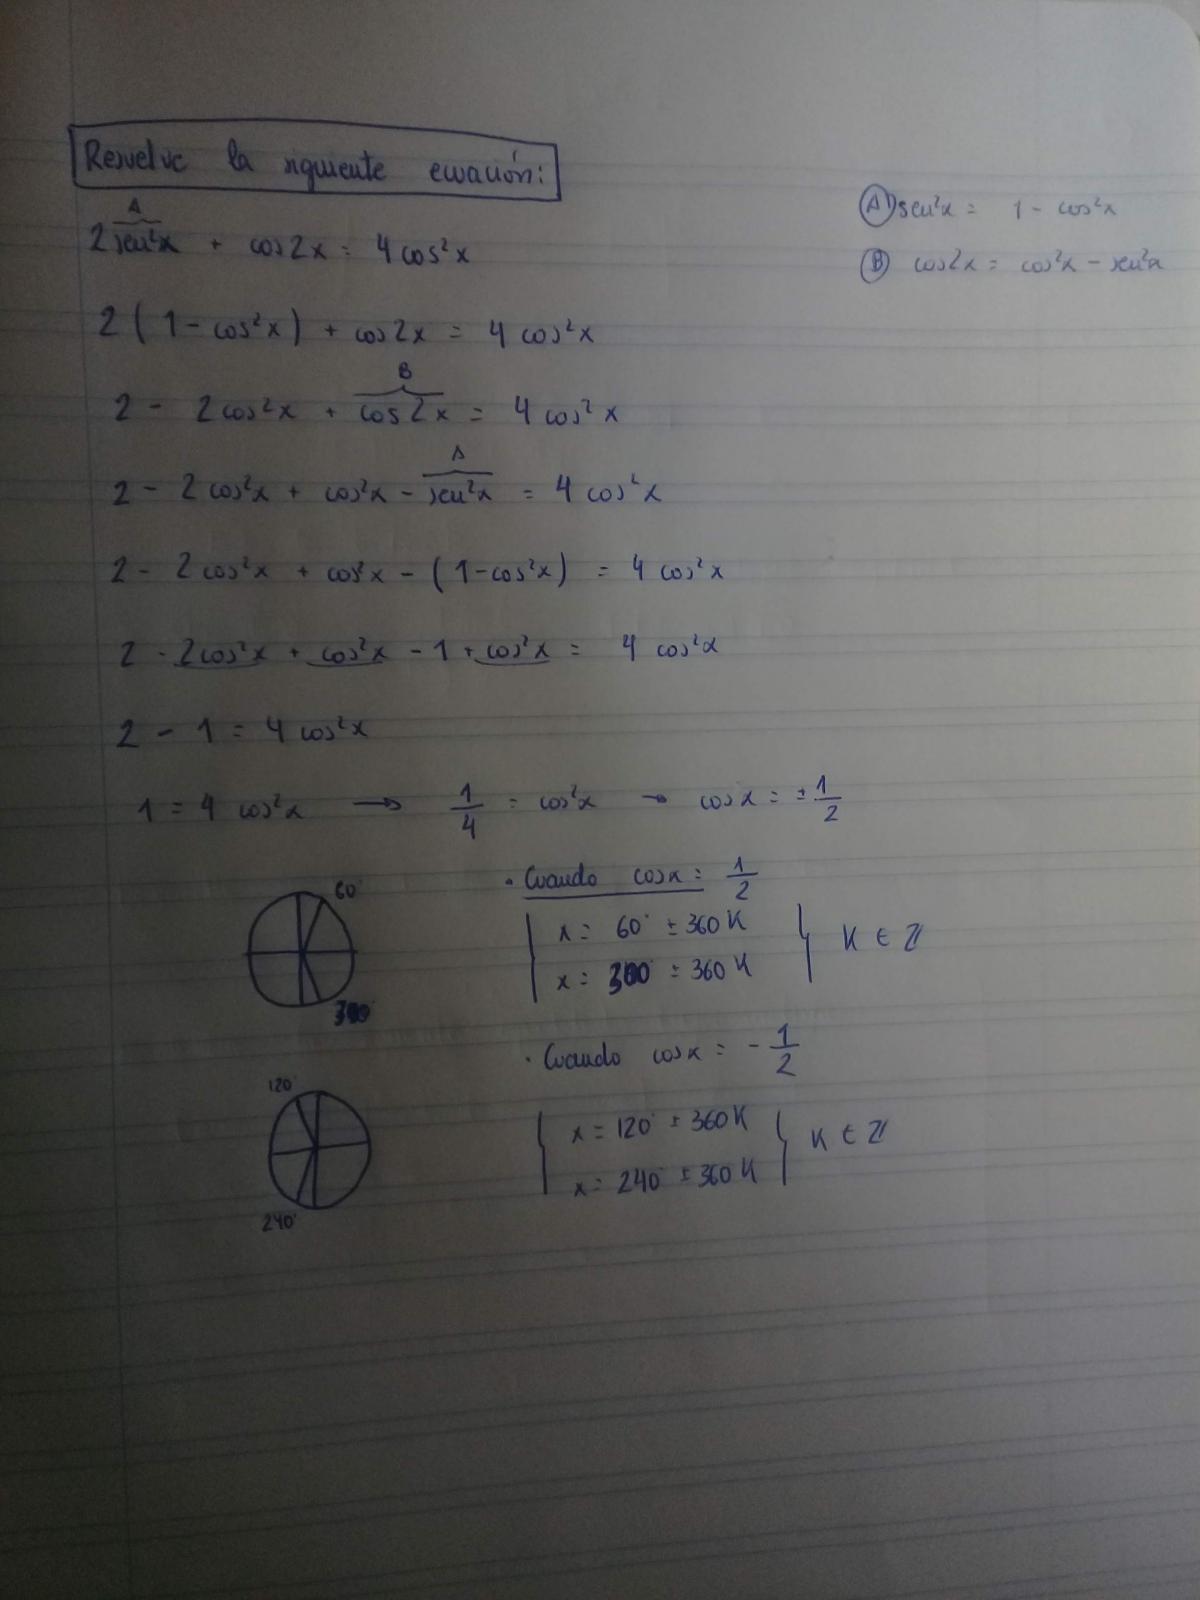 Resuelve la siguiente ecuación:
A
2 sen²x + cos2x = 4 cos²x
A) sen²x = 1 - cos²x
B) cos2x = cos²x - sen²x
2 ( 1 - cos²x ) + cos2x = 4 cos²x
B
2 - 2cos²x + cos2x = 4 cos²x
A
2 - 2cos²x + cos²x - sen²x = 4 cos²x
2 - 2cos²x + cos²x - (1-cos²x) = 4 cos²x
2 - 2cos²x + cos²x - 1 + cos²x = 4 cos²x
2 - 1 = 4 cos²x
1 = 4 cos²x → 1/4 = cos²x → cosx = ±1/2
· Cuando cosx = 1/2
60°
300°
x = 60° ± 360K
x = 300° ± 360K
K ∈ ℤ
· Cuando cosx = -1/2
120°
240°
x = 120° ± 360K
x = 240° ± 360K
K ∈ ℤ